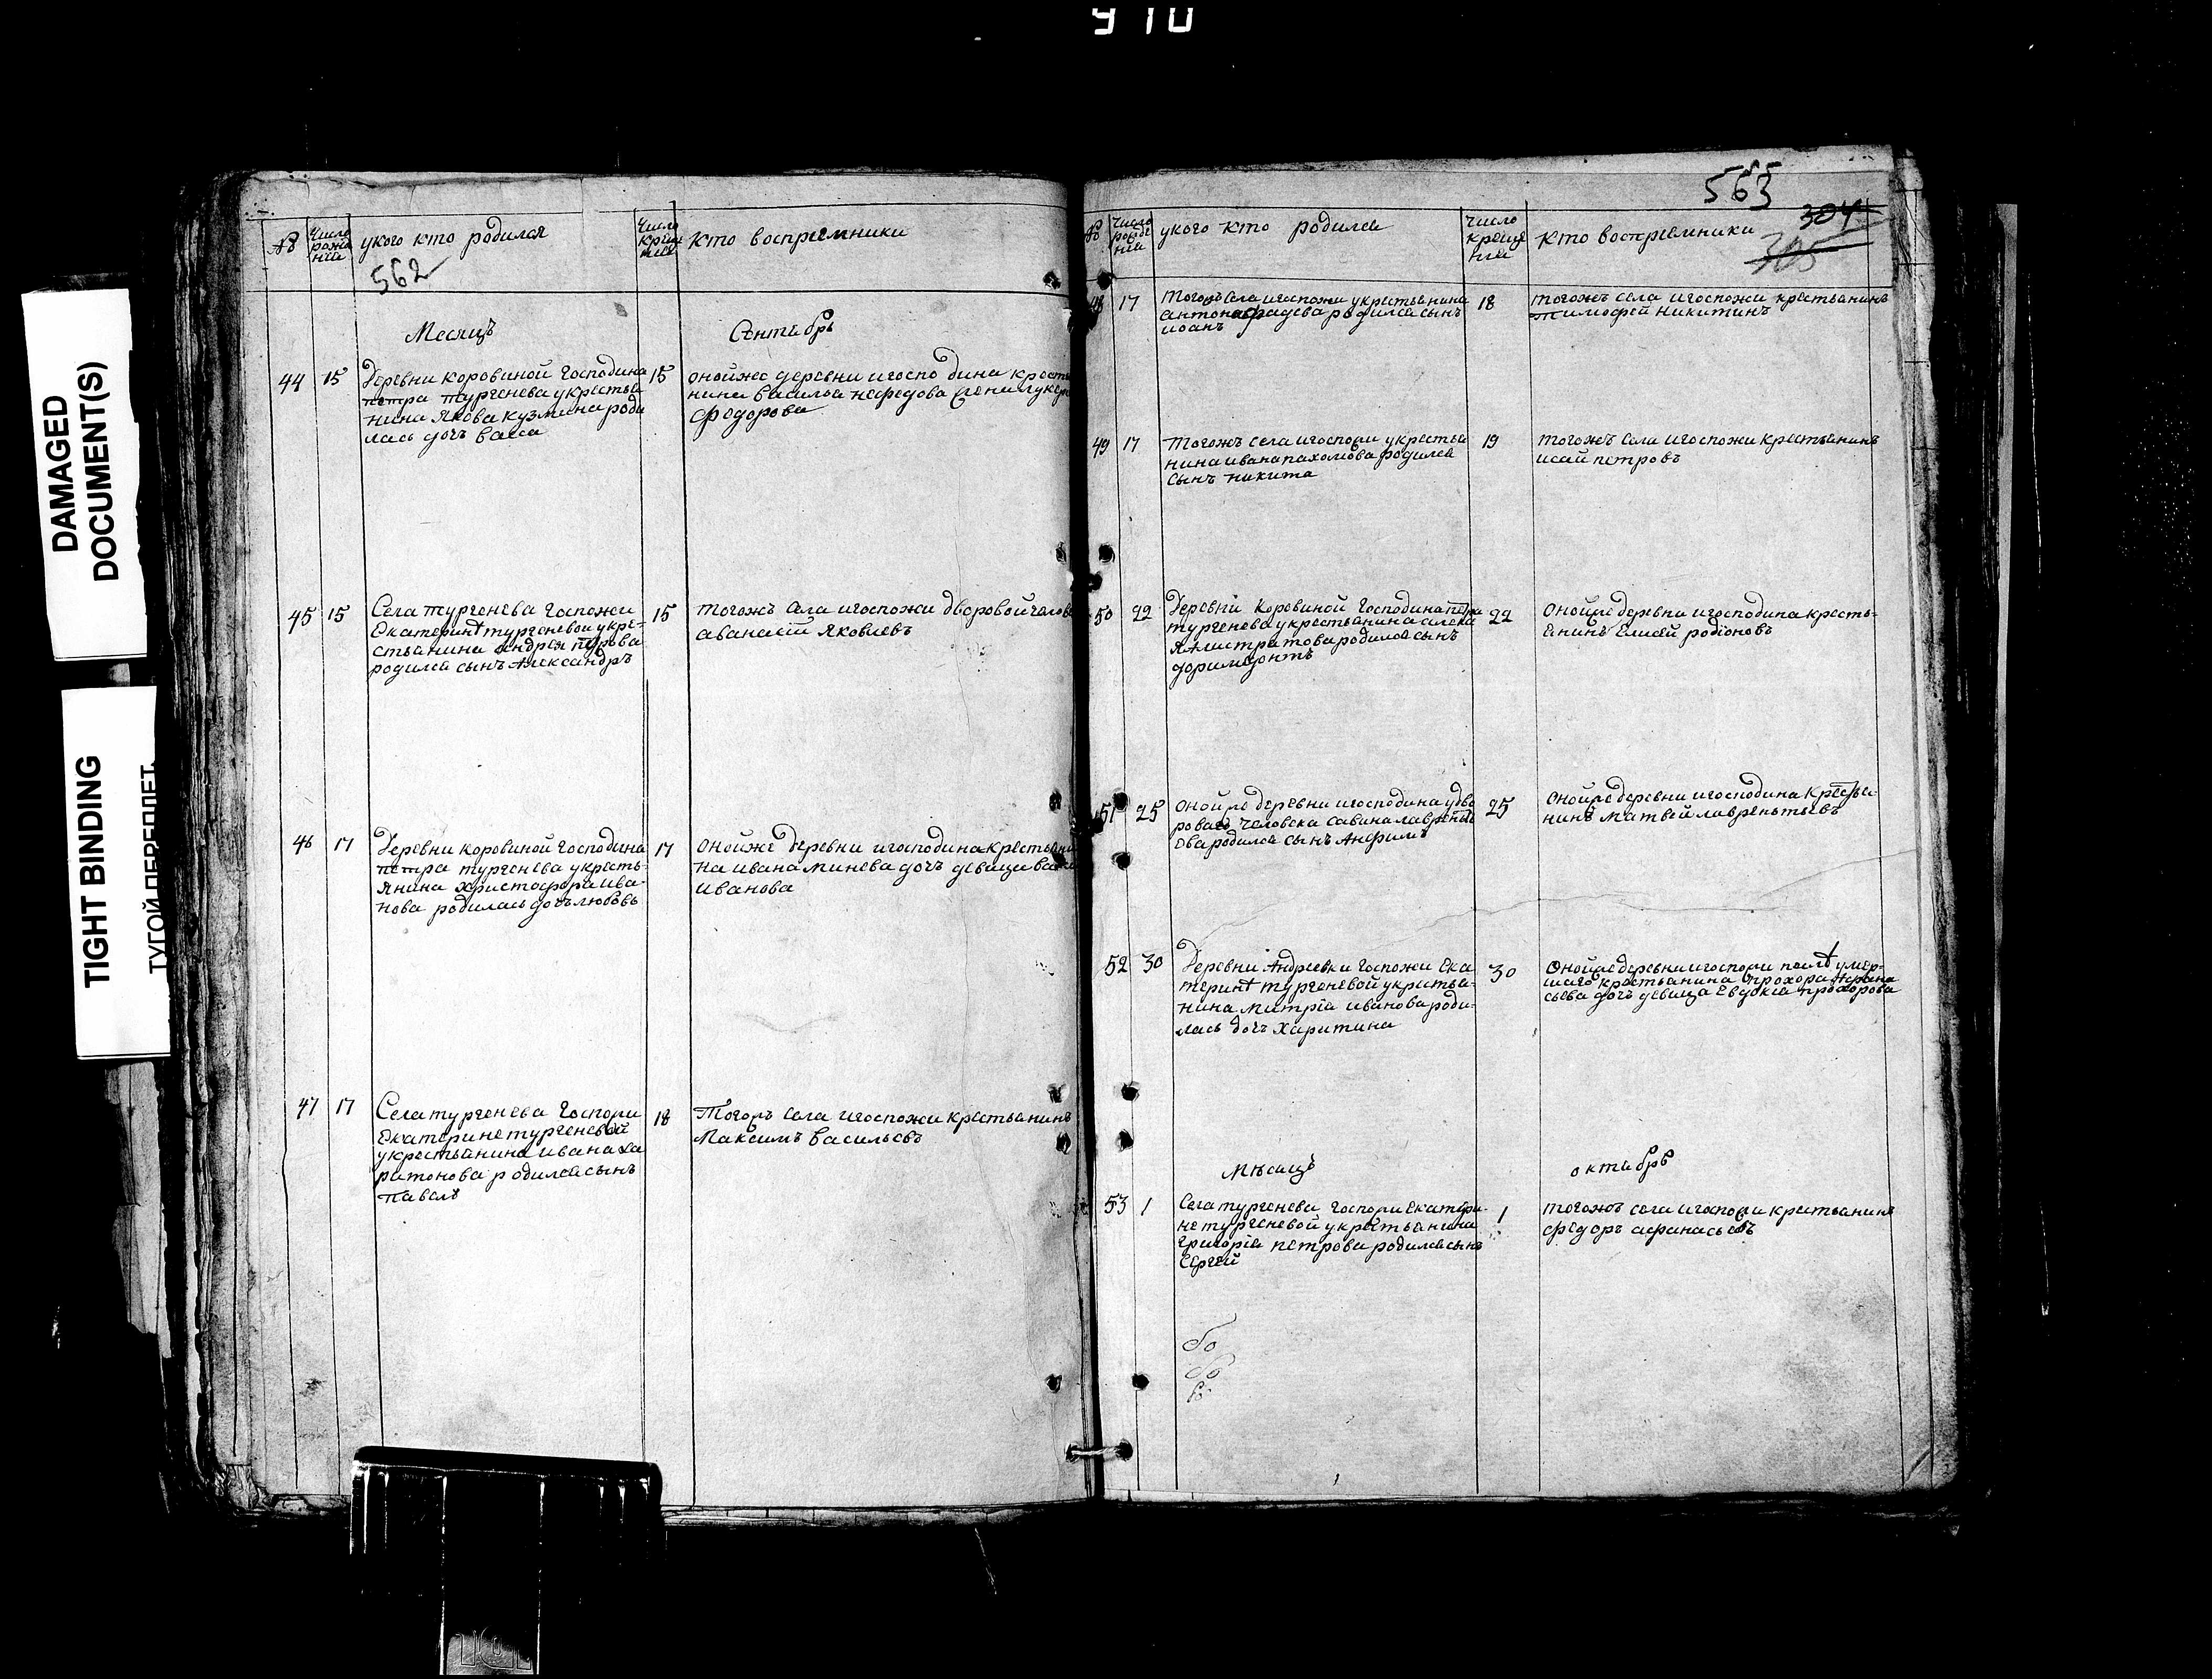 910
DAMAGED
DOCUMENT(S)
TIGHT BINDING
ТУГОЙ ПЕРЕПЛЕТ
№
Число
рожде
нїи
укого кто родился
562
Число
креще
нїи
Кто восприемники
Месяцъ
Сентябрь
44
15
Деревни коровиной Господина
петра тургенева укрестья
нина Якова кузмина роди
лась дочь васса
15
онойже деревни игоспо дина кресть
нина василья нефедова
федорова
45
15
Села тургенева Госпожи
Екатеринѣ тургеневой укре-
стьянина андрея
родился сынъ Александръ
15
тогожъ села игоспожи дворовой челове
аѳанасїй Яковлевъ
46
17
Деревни коровиной Господина
петра тургенева укресть-
янина христофора ива-
нова родилась дочь любовь
17
онойже деревни игосподина крестьяни
на ивана минева дочь девица васса
иванова
47
17
Села тургенева Госпожи
Екатерине тургеневой
укрестьянина ивана ха
ритонова родился сынъ
павелъ
18
Тогожъ села игоспожи крестьянинъ
Максимъ васильевъ
563
304
305
№
Число
рожде
нїи
укого кто родился
Число
креще
нїи
Кто восприемники
48
17
Тогожъ села игоспожи укрестьянина
антона фадеева родился сынъ
иоанъ
18
тогожъ села игоспожи крестьянинъ
тимофей никитинъ
49
17
Тогожъ села игоспожи укрестья
нина ивана пахомова родился
сынъ никита
19
тогожъ села игоспожи крестьянинъ
исай петровъ
50
22
Деревни коровиной Господина петра
тургенева укрестьянина алекс
родился сынъ
доримедонтъ
22
Онойже деревни игосподина кресть-
енинъ Елисей родїоновъ
51
25
онойже деревни игосподина удво
роваго человека савина лавренть
ева родился сынъ Анфимъ
25
Онойже деревни игосподина крестья-
нинъ матвей лаврентьевъ
52
30
Деревни Андреевки Госпожи Ека
теринѣ тургеневой укрестья-
нина митрїа иванова роди-
лась дочь харитина
30
Онойже деревни игоспожи послѣ умер-
шаго крестьянина прохора Афана
сьева дочь девица Евдокїа прохорова
Мѣсяцъ
октябрь
53
1
Села тургенева Госпожи Екатери-
не тургеневой укрестьянина
григорїа петрова родился сынъ
Сергей
1
тогожъ села игоспожи крестьянинъ
федоръ афанасьевъ